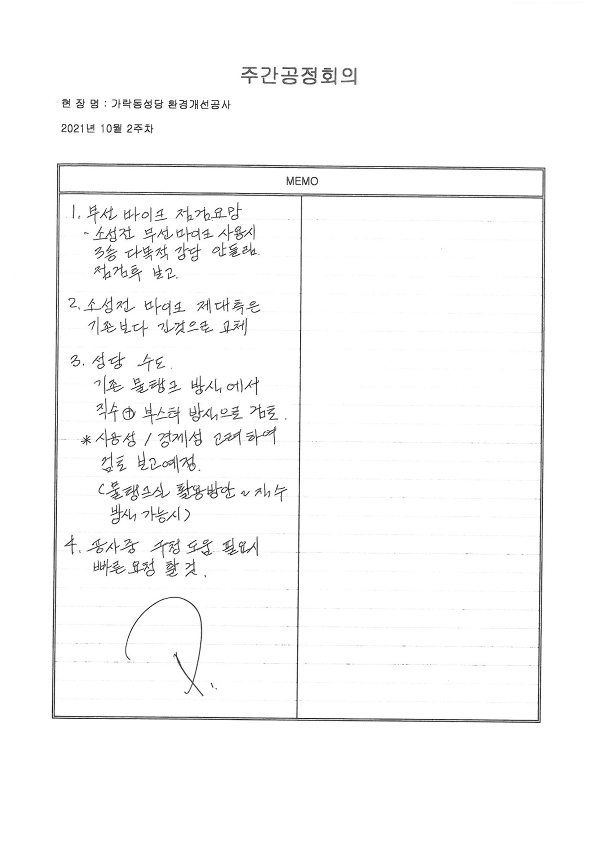 주간공정회의
현 장 명 : 가락동성당 환경개선공사
2021년 10월 2주차
MEMO
1. 무선 마이크 점검요망
- 소성전 무선 마이크 사용시
3층 다목적 강당 안들림.
점검후 보고.
2. 소성전 마이크 제대측은
기존보다 긴것으로 교체
3. 성당 수도.
기존 물탱크 방식에서
직수 ⊕ 부스타 방식으로 검토.
* 사용성 / 경제성 고려하여
검토 보고예정.
(물탱크실 활용방안 ~ 직수
방식 가능시)
4. 공사중 구청 도움 필요시
빠른 요청 할 것.